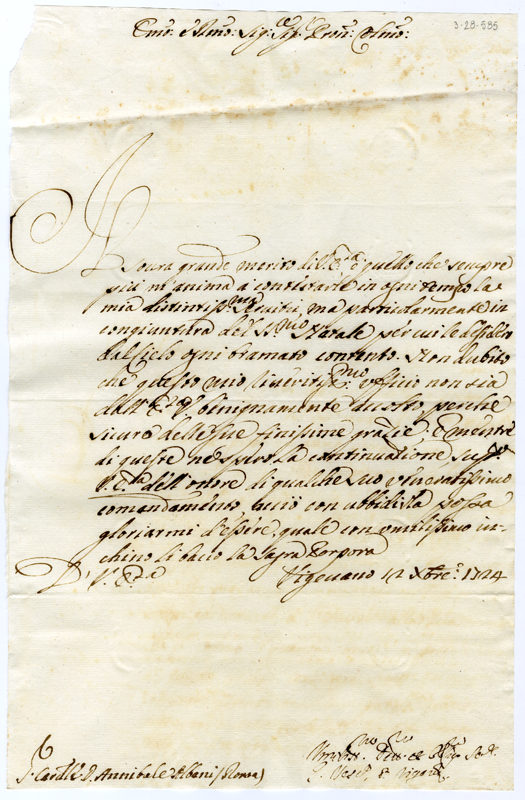 3-28-585
Emo: e Rmo: Sig: Sig: Pron: Colmo:
Il sovra grande merito di V. Em.a è quello che sempre
più m'anima a contestarle in ogni tempo la
mia distintiss.ma servitù, ma particolarmente in
congiuntura del S.mo Natale per cui le desidero
dal Cielo ogni bramato contento. Non dubito
che questo mio sincerissimo ufficio non sia
dall' E. V. benignamente accolto perche
sicuro delle sue finissime grazie, e mentre
di queste ne spero la continuatione,
V. Em.a dell' onore di qualche suo veneratissimo
comandamento, acciò con ubbidirla possa
gloriarmi d'essere, quale con umilissimo in-
chino li bacio la Sagra Porpora
D' V. Em.a Vigevano 12 Xbre. 1724
S.r Card.le D. Annibale Albani (Roma)
Vescovo di Vigevano